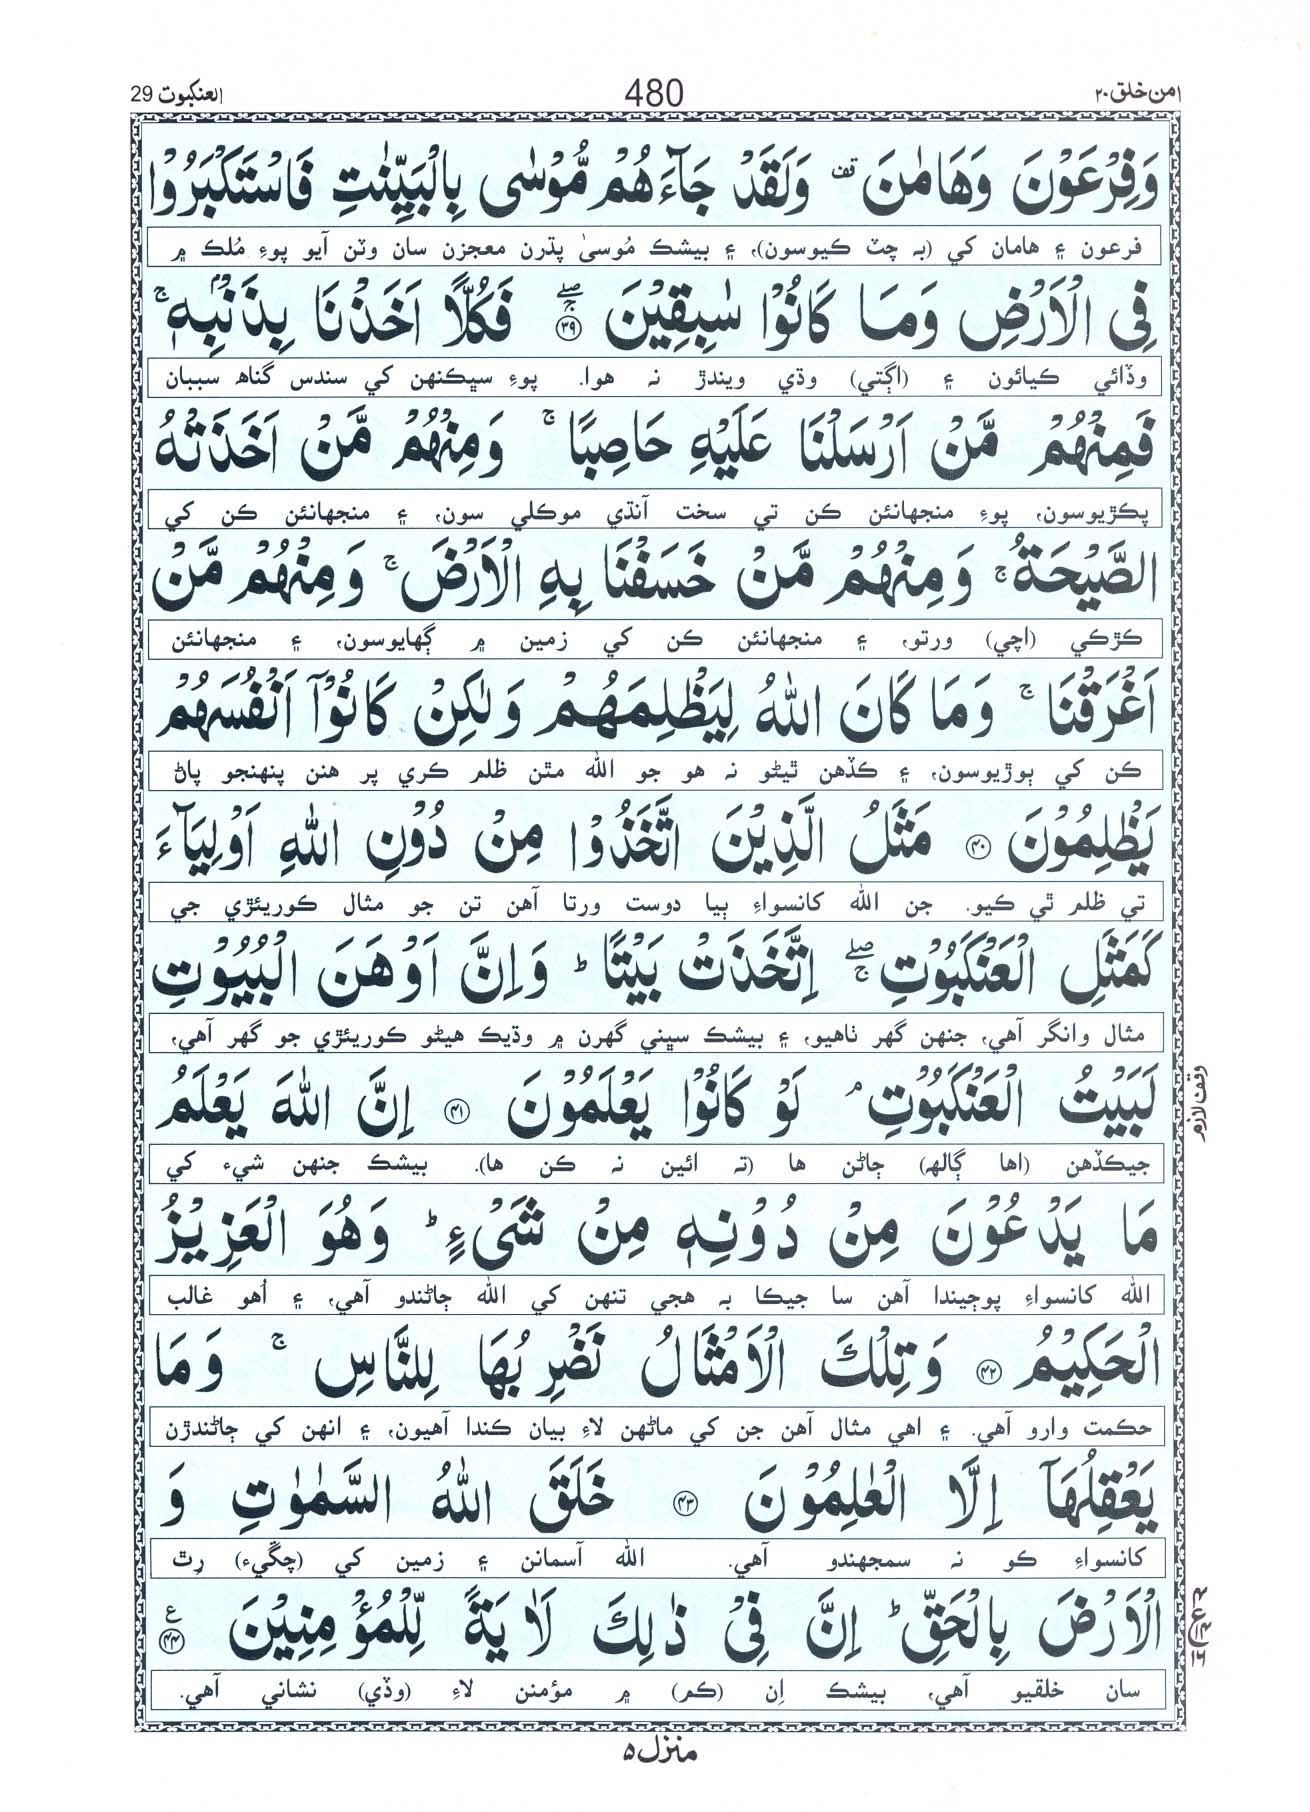 امن خلق ٢٠
480
العنكبوت 29
وَفِرْعَوْنَ وَهَامٰنَ ۣ وَلَقَدْ جَآءَهُمْ مُّوْسٰى بِالْبَيِّنٰتِ فَاسْتَكْبَرُوْا
فرعون ۽ هامان کي (به چٽ کيوسون)، ۽ بيشڪ مُوسىٰ پڌرن معجزن سان وٽن آيو پوءِ مُلڪ ۾
فِى الْاَرْضِ وَمَا كَانُوْا سٰبِقِيْنَ ۝٣٩ ۖۚ فَكُلًّا اَخَذْنَا بِذَنْۢبِهٖ ۚ
وڏائي ڪيائون ۽ (اڳتي) وڌي ويندڙ نہ هوا. پوءِ سڀڪنهن کي سندس گناه سببان
فَمِنْهُمْ مَّنْ اَرْسَلْنَا عَلَيْهِ حَاصِبًا ۚ وَمِنْهُمْ مَّنْ اَخَذَتْهُ
پڪڙيوسون، پوءِ منجهانئن ڪن تي سخت آنڌي موڪلي سون، ۽ منجهانئن ڪن کي
الصَّيْحَةُ ۚ وَمِنْهُمْ مَّنْ خَسَفْنَا بِهِ الْاَرْضَ ۚ وَمِنْهُمْ مَّنْ
ڪڙڪي (اچي) ورتو، ۽ منجهانئن ڪن کي زمين ۾ ڳهايوسون، ۽ منجهانئن
اَغْرَقْنَا ۚ وَمَا كَانَ اللهُ لِيَظْلِمَهُمْ وَلٰكِنْ كَانُوْۤا اَنْفُسَهُمْ
ڪن کي ٻوڙيوسون، ۽ ڪڏهن ٿيڻو نہ هو جو الله مٿن ظلم ڪري پر هنن پنهنجو پاڻ
يَظْلِمُوْنَ ۝٤٠ مَثَلُ الَّذِيْنَ اتَّخَذُوْا مِنْ دُوْنِ اللهِ اَوْلِيَآءَ
تي ظلم ٿي ڪيو. جن الله کانسواءِ ٻيا دوست ورتا آهن تن جو مثال ڪوريئڙي جي
كَمَثَلِ الْعَنْكَبُوْتِ ۖۚ اِتَّخَذَتْ بَيْتًا ؕ وَاِنَّ اَوْهَنَ الْبُيُوْتِ
مثال وانگر آهي، جنهن گهر ٺاهيو، ۽ بيشڪ سڀني گهرن ۾ وڌيڪ هيڻو ڪوريئڙي جو گهر آهي،
لَبَيْتُ الْعَنْكَبُوْتِ ۘ لَوْ كَانُوْا يَعْلَمُوْنَ ۝٤١ اِنَّ اللهَ يَعْلَمُ
وقف لازم
جيڪڏهن (اها ڳالهہ) ڄاڻن ها (تہ ائين نہ ڪن ها). بيشڪ جنهن شيء کي
مَا يَدْعُوْنَ مِنْ دُوْنِهٖ مِنْ شَىْءٍ ؕ وَهُوَ الْعَزِيْزُ
الله کانسواءِ پوڄيندا آهن سا جيڪا بہ هجي تنهن کي الله ڄاڻندو آهي، ۽ اُهو غالب
الْحَكِيْمُ ۝٤٢ وَتِلْكَ الْاَمْثَالُ نَضْرِبُهَا لِلنَّاسِ ۚ وَمَا
حڪمت وارو آهي. ۽ اهي مثال آهن جن کي ماڻهن لاءِ بيان ڪندا آهيون، ۽ انهن کي ڄاڻندڙن
يَعْقِلُهَاۤ اِلَّا الْعٰلِمُوْنَ ۝٤٣ خَلَقَ اللهُ السَّمٰوٰتِ وَ
کانسواءِ ڪو نہ سمجهندو آهي. الله آسمانن ۽ زمين کي (چڱيء) رِٿ
الْاَرْضَ بِالْحَقِّ ؕ اِنَّ فِىْ ذٰلِكَ لَاٰيَةً لِّلْمُؤْمِنِيْنَ ۝٤٤ ع
سان خلقيو آهي، بيشڪ اِن (ڪم) ۾ مؤمنن لاءِ (وڏي) نشاني آهي.
منزل ٥